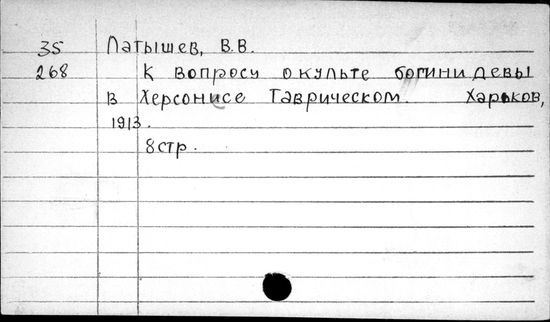 35 Латышев, В.В.
268 К вопросу о культе богини девы
в Херсонисе Таврическом. Харьков,
1913.
8 стр.